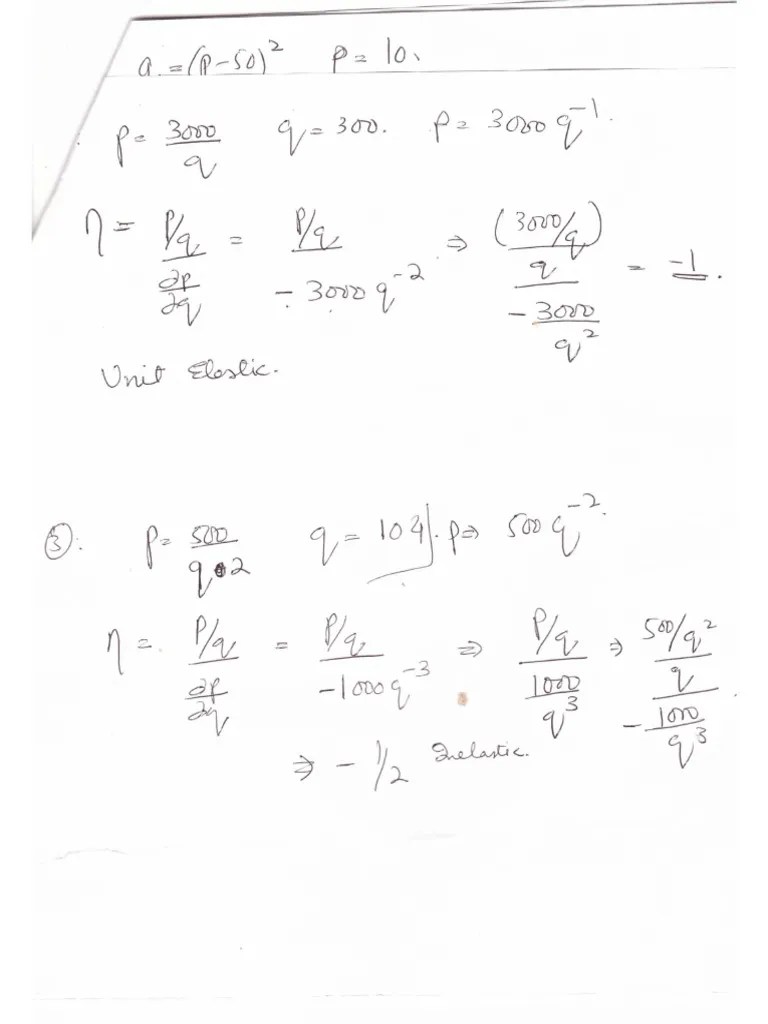 q = (P-50)² P = 10.
P = 3000/q q = 300. P = 3000 q⁻¹.
η = (P/q)/(∂P/∂q) = (P/q)/(-3000 q⁻²) ⇒ ((3000/q)/q)/(-3000/q²) = -1.
Unit Elastic.
③: P = 500/q^2 q = 104. P ⇒ 500 q⁻².
η = (P/q)/(∂P/∂q) = (P/q)/(-1000 q⁻³) ⇒ (P/q)/(1000/q³) ⇒ ((500/q²)/q)/(-1000/q³).
⇒ -1/2 Inelastic.